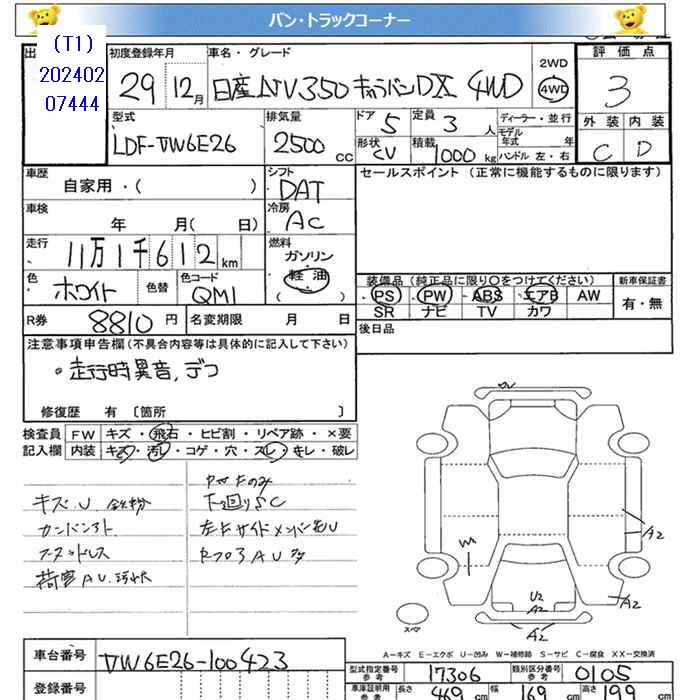 バン・トラックコーナー
(T1)
202402
07444
初度登録年月 車名・グレード 2WD 4WD 評価点
29 12月 日産 NV350 キャラバンDX 4WD 3
型式 排気量 ドア 定員 ディーラー・並行 外装 内装
LDF-VW6E26 2500 CC 5 3人 モデル年式 年 C D
形状 積載 ハンドル 左・右
CV 1000kg
車歴 シフト セールスポイント (正常に機能するものに限ります)
自家用・( ) DAT
車検 冷房
年 月( 日) AC
走行 燃料
11万1千612km ガソリン
軽油
色 色替 色コード 装備品 (純正品に限り○をつけてください) 新車保証書
ホワイト QM1 PS PW ABS エアB AW 有・無
SR ナビ TV カワ
R券 8810円 名変期限 月 日 後日品
注意事項申告欄(不具合内容等は具体的に記入して下さい)
・走行時異音、デフ
修復歴 有 〔箇所 〕
検査員 FW キズ・飛石・ヒビ割・リペア跡・×要
記入欄 内装 キズ・汚レ・コゲ・穴・スレ・キレ・破レ
キズ、U
下回りSC
荷室AU、汚レ
左Fサイドメンバー
W
A2
U2
A2
A2
A2
スペア
A-キズ E-エクボ U-凹み W-補修跡 S-サビ C-腐食 XX-交換済
車台番号 VW6E26-100423
登録番号
型式指定番号 参考 17306 類別区分番号 参考 0105
車庫証明用 参考 長さ 469cm 幅 169cm 高さ 199cm